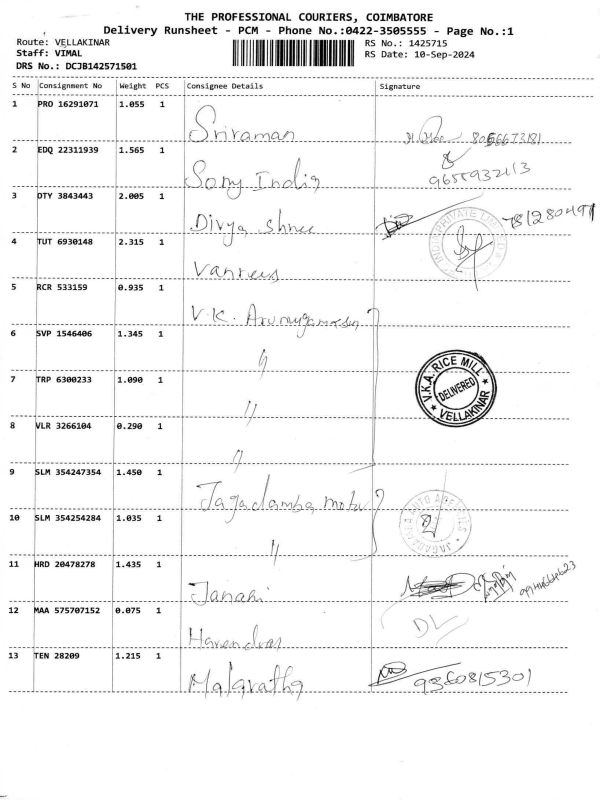 THE PROFESSIONAL COURIERS, COIMBATORE
Delivery Runsheet - PCM - Phone No.:0422-3505555 - Page No.:1
Route: VELLAKINAR RS No.: 1425715
Staff: VIMAL RS Date: 10-Sep-2024
DRS No.: DCJB142571501
S No Consignment No Weight PCS Consignee Details Signature
1 PRO 16291071 1.055 1
Sriraman
2 EDQ 22311939 1.565 1
Sony India 9655932113
3 OTY 3843443 2.005 1
Divya Shree
4 TUT 6930148 2.315 1
5 RCR 533159 0.935 1
V.K.
6 SVP 1546406 1.345 1
"
7 TRP 6300233 1.090 1
V.K.A. RICE MILL
DELIVERED
VELLAKINAR
"
8 VLR 3266104 0.290 1
"
9 SLM 354247354 1.450 1
Jagadamba
10 SLM 354254284 1.035 1
"
11 HRD 20478278 1.435 1
Janaki
12 MAA 575707152 0.075 1
DL
13 TEN 28209 1.215 1
9360815301